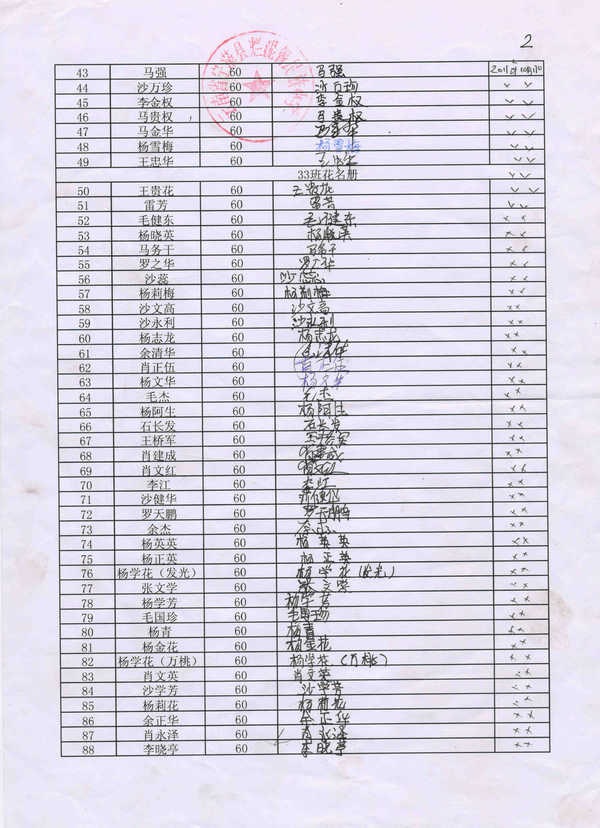 2
43 马强 60 马强
44 沙万珍 60 沙万珍
45 李金权 60 李金权
46 马贵权 60 马贵权
47 马金华 60
48 杨雪梅 60 杨雪梅
49 王忠华 60
33班花名册
50 王贵花 60 王贵花
51 雷芳 60 雷芳
52 毛健东 60 毛健东
53 杨晓英 60 杨晓英
54 马务干 60
55 罗之华 60 罗之华
56 沙蕊 60 沙蕊
57 杨莉梅 60 杨莉梅
58 沙文高 60 沙文高
59 沙永利 60 沙永利
60 杨志龙 60 杨志龙
61 余清华 60
62 肖正伍 60
63 杨文华 60 杨文华
64 毛杰 60 毛杰
65 杨阿生 60 杨阿生
66 石长发 60 石长发
67 王桥军 60 王桥军
68 肖建成 60 肖建成
69 肖文红 60 肖文红
70 李江 60 李江
71 沙健华 60
72 罗天鹏 60 罗天鹏
73 余杰 60
74 杨英英 60 杨英英
75 杨正英 60 杨正英
76 杨学花（发光） 60 杨学花（发光）
77 张文学 60
78 杨学芳 60 杨学芳
79 毛国珍 60 毛国珍
80 杨青 60 杨青
81 杨金花 60 杨金花
82 杨学花（万桃） 60 杨学花（万桃）
83 肖文英 60 肖文英
84 沙学芳 60 沙学芳
85 杨莉花 60 杨莉花
86 余正华 60 余正华
87 肖永泽 60 肖永泽
88 李晓亭 60 李晓亭